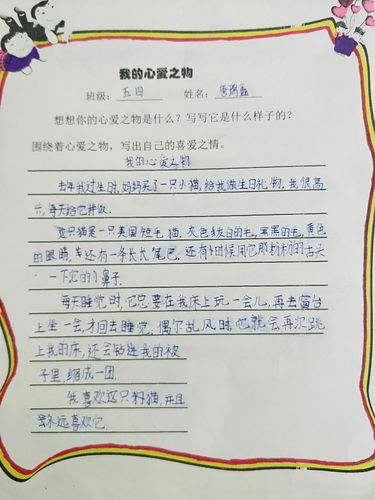 我的心爱之物
班级：五四 姓名：
想想你的心爱之物是什么？写写它是什么样子的？
围绕着心爱之物，写出自己的喜爱之情。
我的心爱之物
去年我过生日时，妈妈买了一只小猫，给我做生日礼物，我很高
每天给它拌饭。
这只猫是一只美国短毛猫，灰色 白的毛，黑黑的毛，黄色
的眼睛，还有一条长长尾巴，还有时候用它那粉粉的舌头
一下它的小鼻子。
每天睡觉时，它总要在我床上玩一会儿，再去窗台
上坐一会，才回去睡觉，偶尔刮风时它就会再次跳
上我的床，还会钻进我的被
子里，缩成一团。
我喜欢这只 猫，并且
永远喜欢它。